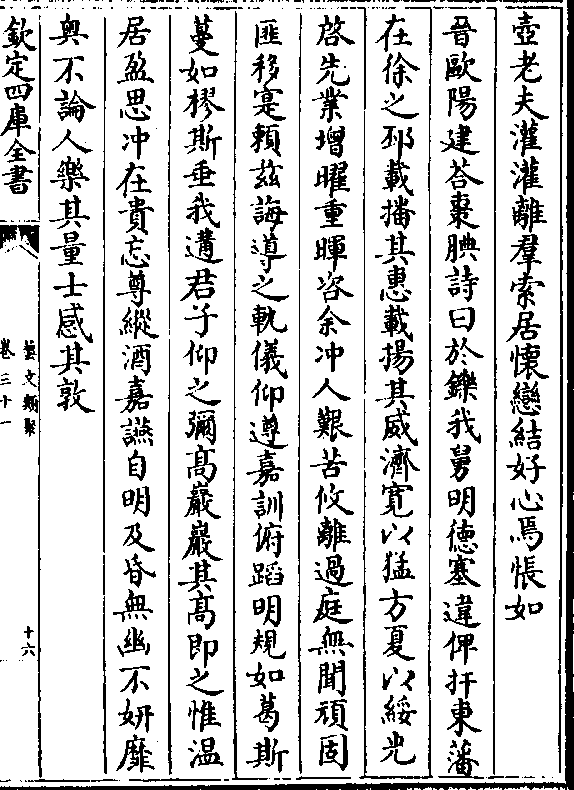 壺老夫灌灌離羣索居懷戀結好心焉悵如
晉歐陽建荅棗腆詩曰於鑠我舅明徳塞違俾扞東藩
在徐之邳載播其惠載揚其威濟寛以猛方夏以綏光
啓先業增曜重暉咨余冲人艱苦攸離過庭無聞頑固
匪移寔頼兹誨導之軌儀仰遵嘉訓俯蹈明規如葛斯
蔓如樛斯垂我遘君子仰之彌髙巖巖其髙即之惟温
居盈思冲在貴忘尊縱酒嘉讌自明及昏無幽不妍靡
奥不論人樂其量士感其敦
欽定四庫全書
藝文類聚
卷三十一
十六